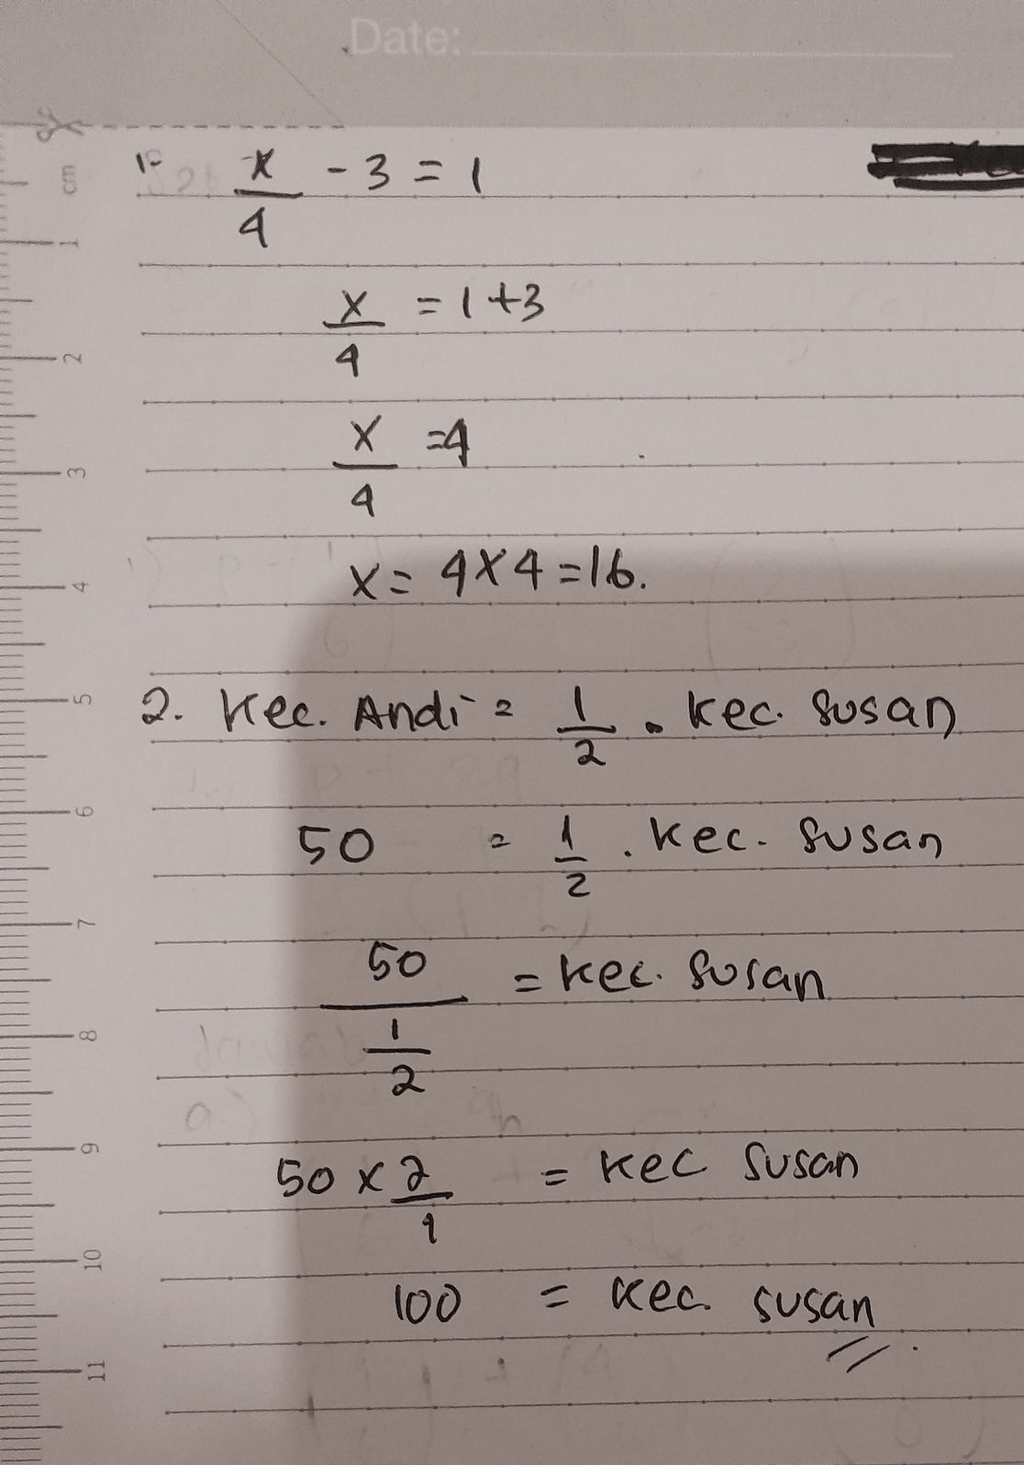 Date:
cm
1
2
3
4
5
6
7
8
9
10
11
1- x/4 - 3 = 1
x/4 = 1 + 3
x/4 = 4
x = 4 x 4 = 16.
2. Kec. Andi = 1/2 . Kec. Susan
50 = 1/2 . Kec. Susan
50/(1/2) = Kec. Susan
50 x 2/1 = Kec Susan
100 = Kec. Susan //.